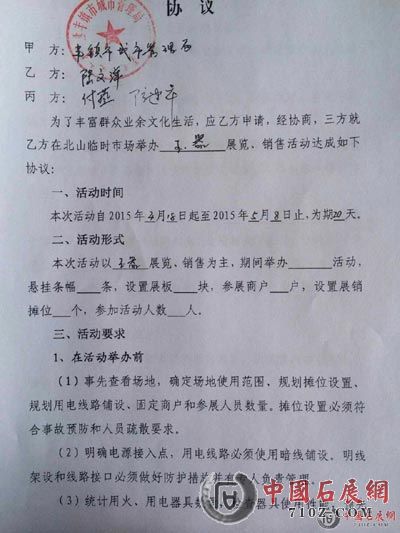 协 议
甲 方：
乙 方：
丙 方：付燕
为了丰富群众业余文化生活，应乙方申请，经协商，三方就
乙方在北山临时市场举办 玉器 展览、销售活动达成如下
协议：
一、活动时间
本次活动自 2015 年 月18日起至 2015 年5月8日止，为期20天。
二、活动形式
本次活动以玉器展览、销售为主，期间举办 活动，
悬挂条幅 条，设置展板 块，参展商户 户，设置展销
摊位 个，参加活动人数 人。
三、活动要求
1、在活动举办前
（1）事先查看场地，确定场地使用范围、规划摊位设置、
规划用电线路铺设、固定商户和参展人员数量。摊位设置必须符
合事故预防和人员疏散要求。
（2）明确电源接入点，用电线路必须使用暗线铺设。明线
架设和线路接口必须做好防护措施并有专人负责管理。
（3）统计用火、用电器具
中國石展網
710Z.COM
中國石展網
710Z.COM